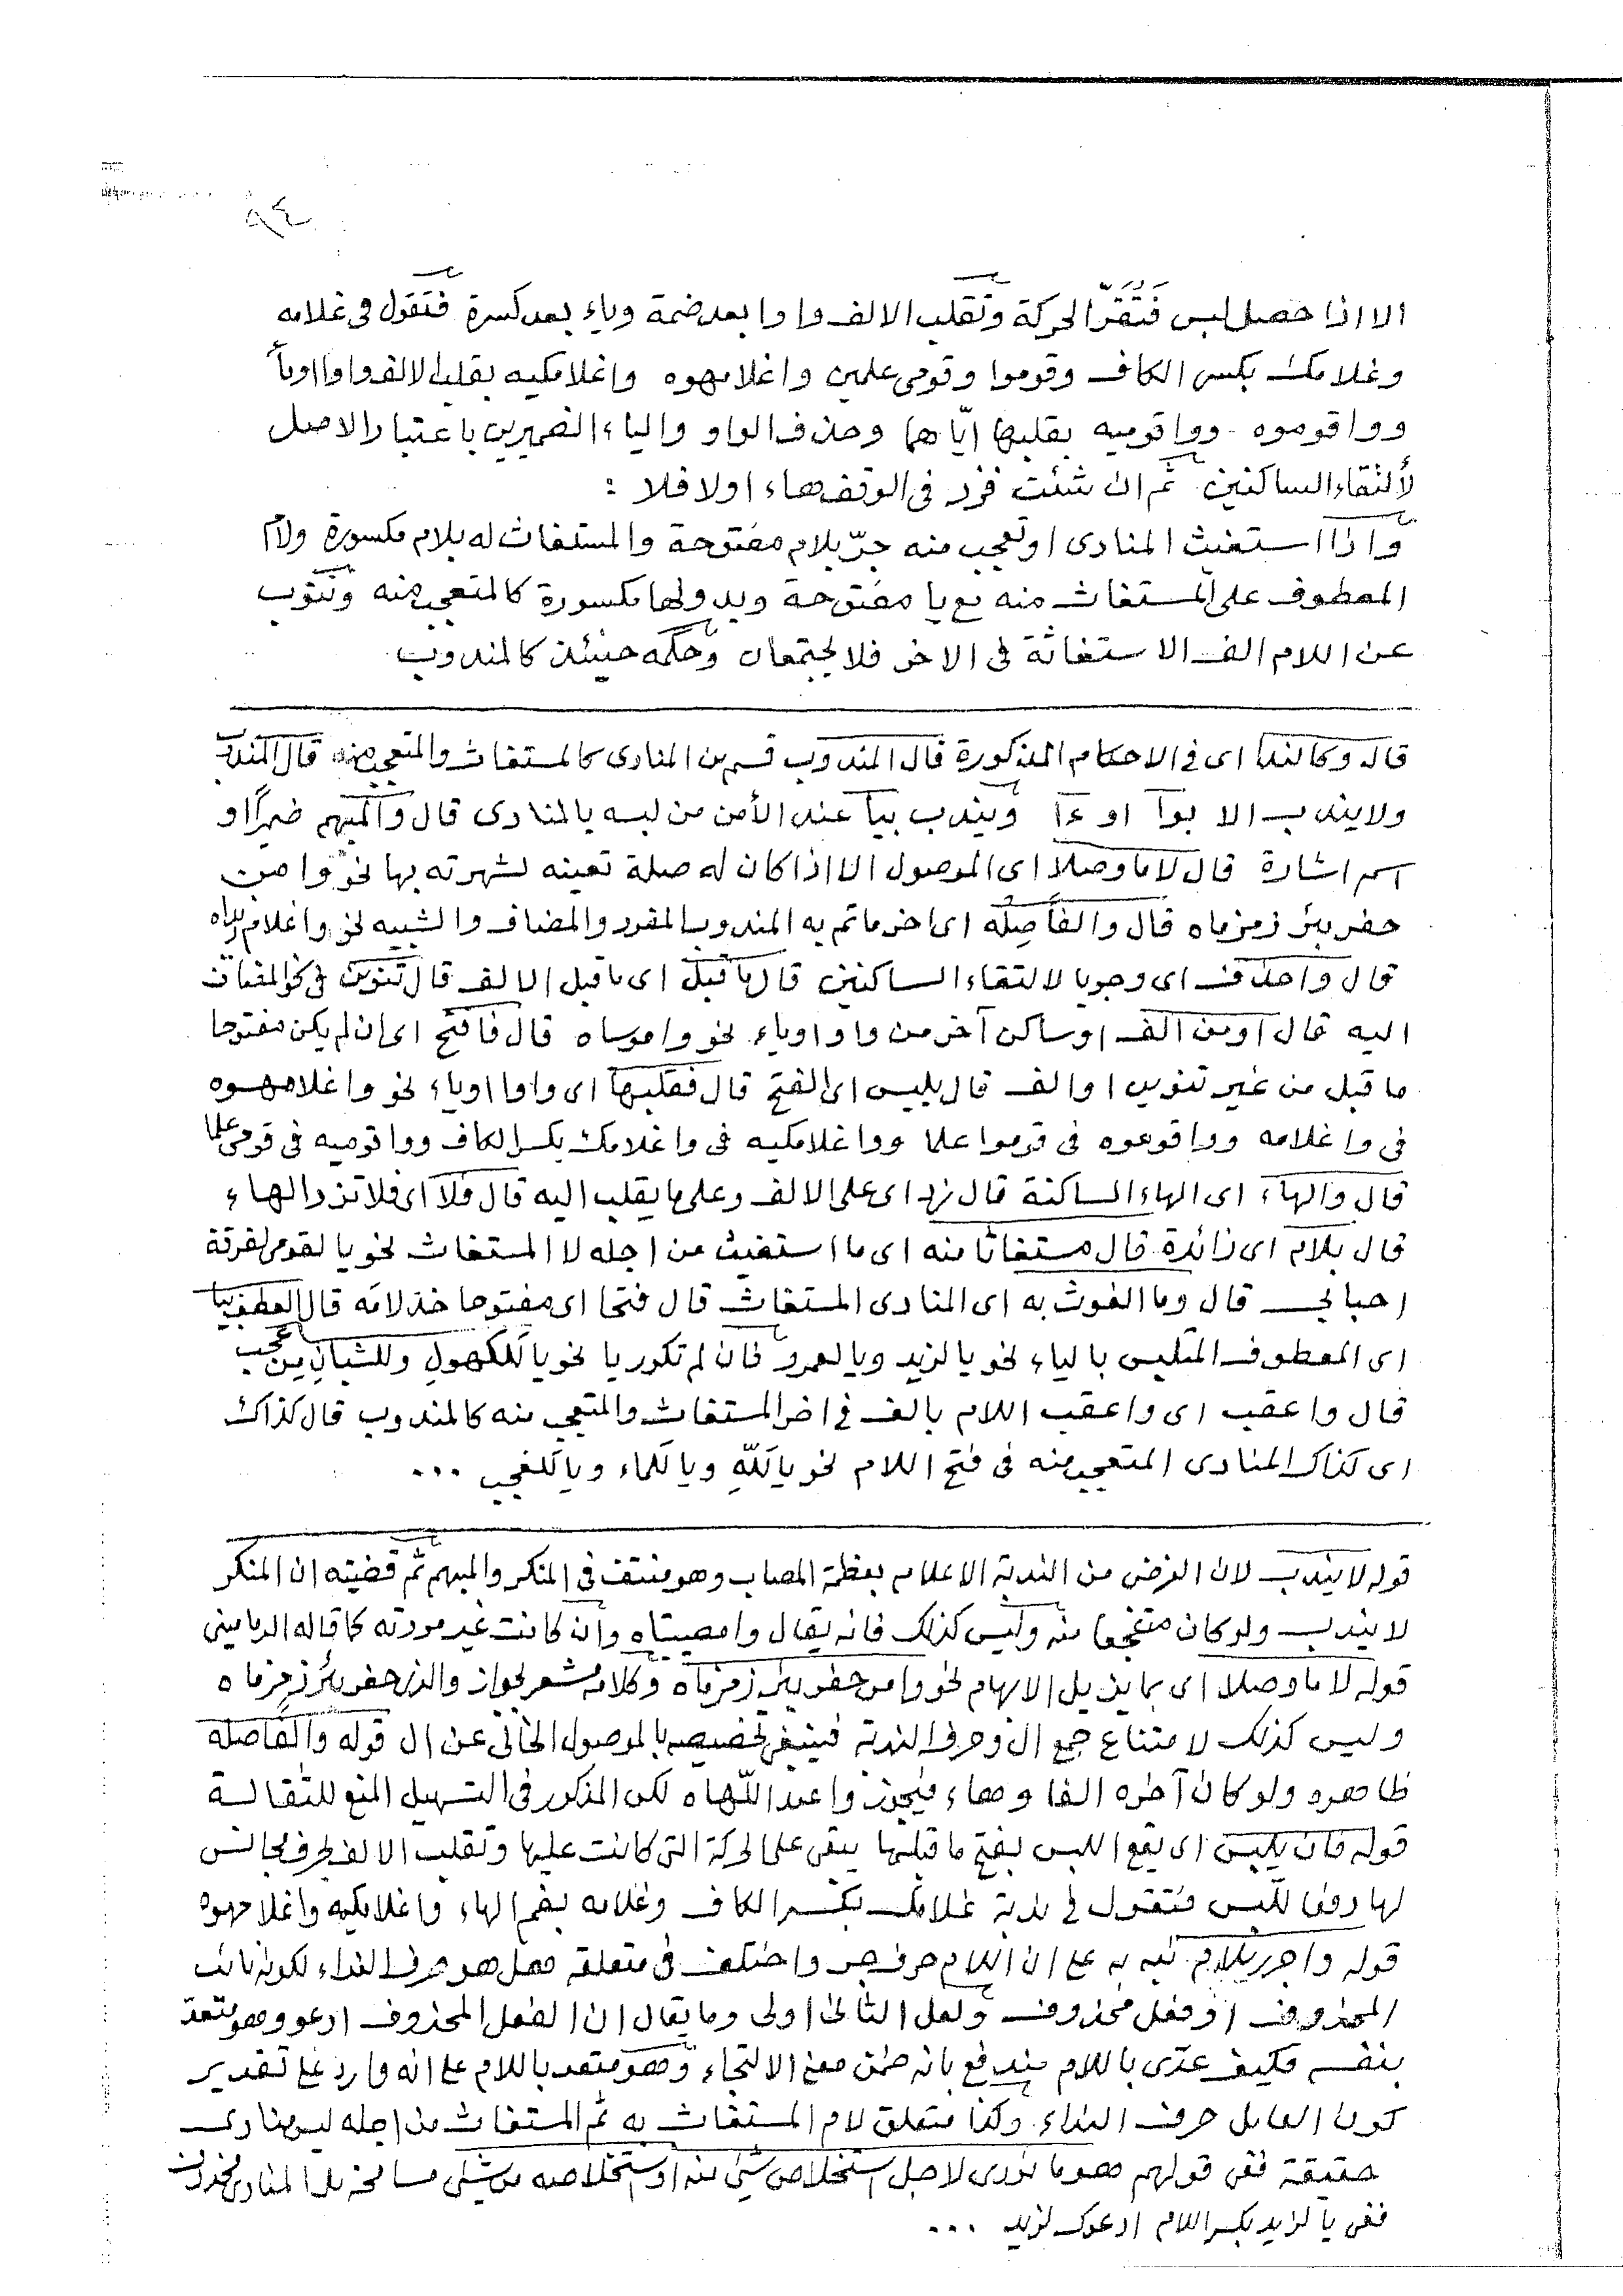 ٩٤
الا اذا حصل لبس فَتُقَرّ الحركة وتقلب الالف واوا بعد ضمة وياء بعد كسرة فتقول فى غلامه
وغلامك بكسر الكاف وقوموا وقومى علمين واغلامهوه واغلامكيه بقلب الالف واوا اوياً
وواقوموه وواقوميه بقلبها ايّاهما وحذف الواو والياء الضميرين باعتبار الاصل
لألتقاء الساكنين ثم ان شئت فزد فى الوقف هاء اولا فلا :
واذا استغيث المنادى اوتعجب منه جرّ بلام مفتوحة والمستغاث له بلام مكسورة ولام
المعطوف على المستغاث منه مع يا مفتوحة وبدونها مكسورة كالمتعجب منه وتنوب
عن اللام الف الاستغاثة فى الاخر فلا يجتمعان وحكمه حينئذ كالمندوب
قال وكالندا اى فى الاحكام المذكورة قال المندوب قسم من المنادى كالمستغاث والمتعجب منه قال المندوب
ولا يندب الا بوا او ءا ويندب بيا عند الأمن من لبسه بالمنادى قال والمبهم ضميرًا او
اسم اشارة قال لا ما وصلا اى الموصول الا اذا كان له صلة تعينه لشهرته بها نحو وا من
حفر بئر زمزماه قال والفًا صِلْه اى اخر ما تم به المندوب المفرد والمضاف والشبيه نحو واغلام زيداه
قال واحذف اى وجوبا لالتقاء الساكنين قال ما قبل اى ما قبل الالف قال تنوين فى نحو المضاف
اليه قال اومن الف اوساكن آخر من واو اوياء نحو واموساه قال فافتح اى ان لم يكن مفتوحا
ما قبل من غير تنوين او الف قال يلبس اى الفتح قال فقلبها اى واوا اوياء نحو واغلامهوه
فى واغلامه وواقوموه فى قوموا علما وواغلامكيه فى واغلامك بكسر الكاف وواقوميه فى قومى علما
قال والهاء اى الهاء الساكنة قال زد اى على الالف وعلى ما يقلب اليه قال فلا اى فلا تزد الهاء
قال بلام اى زائدة قال مستغاثا منه اى ما استغيث من اجله لا المستغاث نحو يا لقومى لفرقة
احبابى قال وما الغوث به اى المنادى المستغاث قال فتحا اى مفتوحا خذ لامَه قال العطف بيا
اى المعطوف المتلبس بالياء نحو يا لزيد ويا لعمرو فان لم تكرر يا نحو يا لَلكهولِ وللشبانِ مِن عجب
قال واعقب اى واعقب اللام بالف فى اخر المستغاث والمتعجب منه كالمندوب قال كذاك
اى كذاك المنادى المتعجب منه فى فتح اللام نحو يا لَلّهِ ويا لَلماء ويا لَلعجب ...
قوله لا يندب لان الغرض من الندبة الاعلام بعظمة المصاب وهو منتف فى المنكر والمبهم ثم قضيته ان المنكر
لا يندب ولو كان متفجعا منه وليس كذلك فانه يقال وامصيبتاه وان كانت غير موردته كما قاله الدمامينى
قوله لا ما وصلا اى بما يزيل الابهام نحو وامن حفر بئر زمزماه وكلامه مشعر بجواز والذى حفر بئر زمزماه
وليس كذلك لامتناع جمع ال وحرف الندبة فينبغى تخصيصه بالموصول الخالى عن ال قوله والفًا صله
ظاهره ولو كان آخره الفا وهاء فيجوز واعبد اللهاه لكن المذكور فى التسهيل المنع للثقالة
قوله فان يلبس اى يقع اللبس بفتح ما قبلها يبقى على الحركة التى كانت عليها وتقلب الالف لحرف مجانس
لها دفعا للّبس فتقول فى ندبة غلامك بكسر الكاف وغلامه بضم الهاء واغلامكيه واغلامهوه
قوله واجرر بلام نبه به على ان اللام حرف جر واختلف فى متعلقه فهل هو حرف النداء لكونه نائب
المحذوف او فعل محذوف ولعل الثانى اولى وما يقال ان الفعل المحذوف ادعو وهو يتعد
بنفسه فكيف عدّى باللام مندفع بانه ضمن معنى الالتجاء وهو متعد باللام على انه وارد على تقدير
كون العامل حرف النداء وكذا متعلق لام المستغاث به ثم المستغاث من اجله ليس منادى
حقيقة ففى قولهم هو ما نودى لاجل استخلاص شيئ منه او استخلاصه من شيئ مسامحة بل المنادى محذوف
ففى يا لزيد بكسر اللام ادعوك لزيد ...